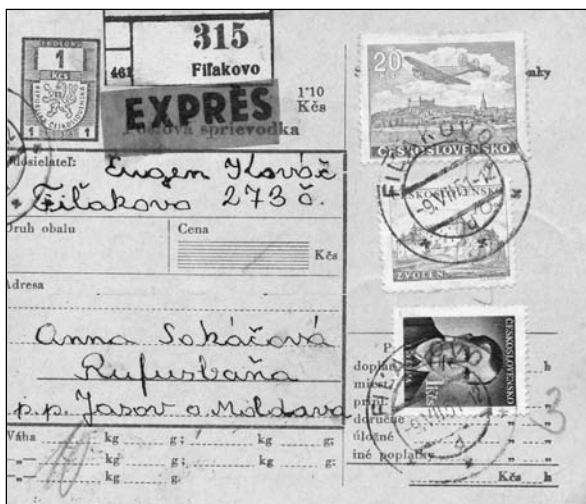 KOLKOVÝ
1
Kčs
REPUBLIKA ČESKOSLOVENSKÁ
1 1
315
461 Fiľakovo
EXPRÈS
1'10
Kčs
Poštová sprievodka
Odosielateľ: Eugen Kováč
Fiľakovo 273 č.
Druh obalu
Cena
Kčs
Adresa
Anna Sokáčová
Rufusbaňa
p.p. Jasov o. Moldava
Váha kg g; kg g;
—„— kg g; kg g;
—„— kg g.
20
KČS
ČESKOSLOVENSKO
FIĽAKOVO
-9.VII.51-12
ČESKOSLOVENSKO
ZVOLEN
ČESKOSLOVENSKO
-9.VII.51-12
doručné „ „
úložné „ „
iné poplatky „ „
Kčs h
3